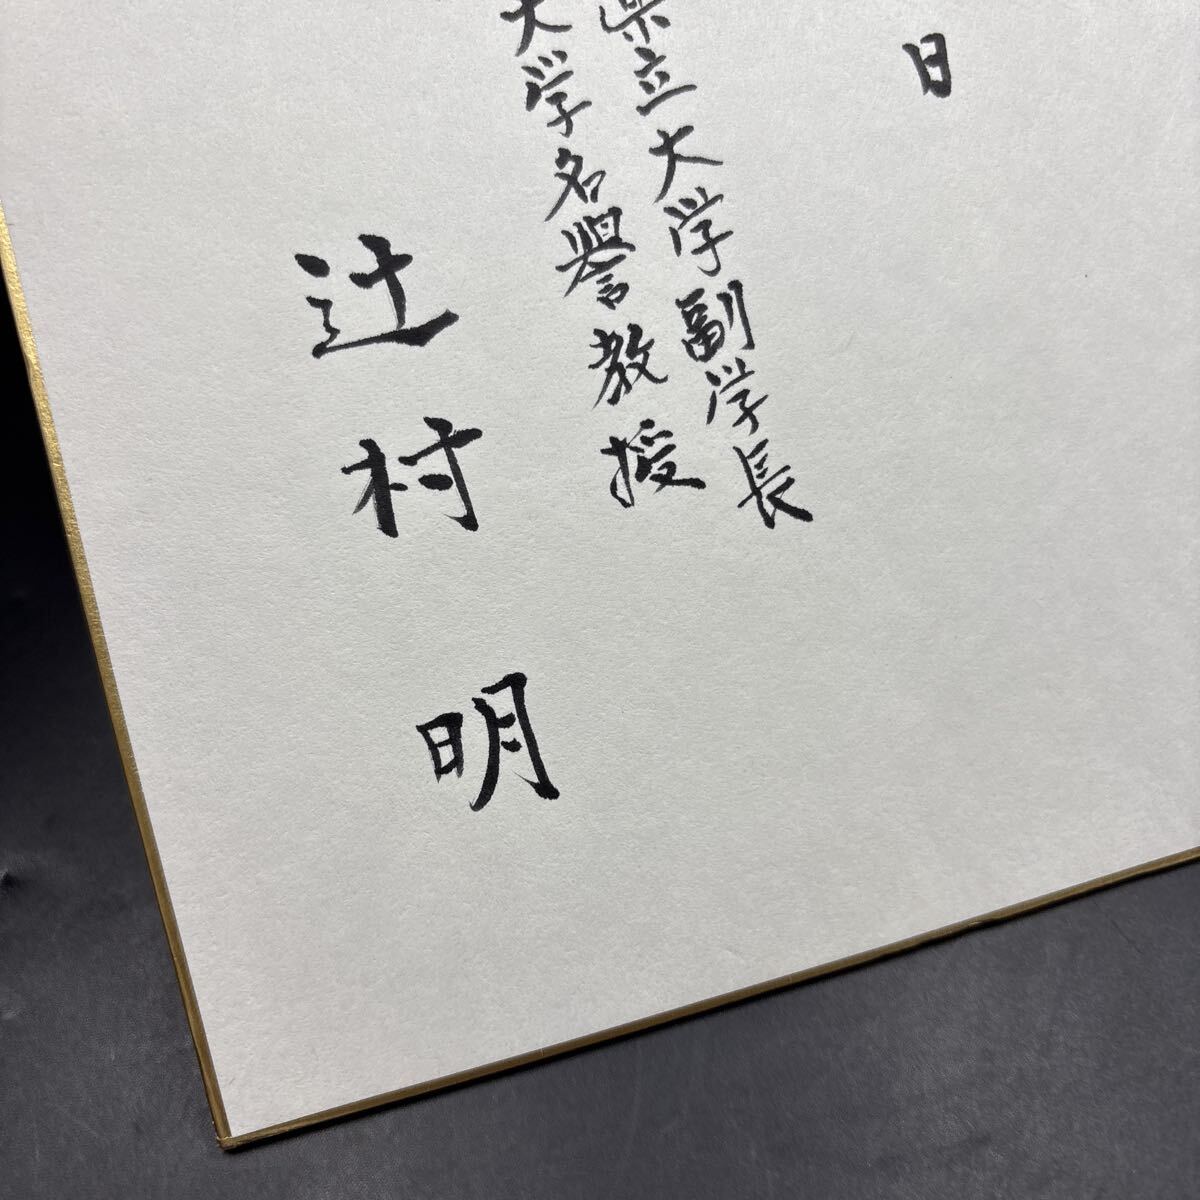 日
県立大学副学長
大学名譽教授
辻村明